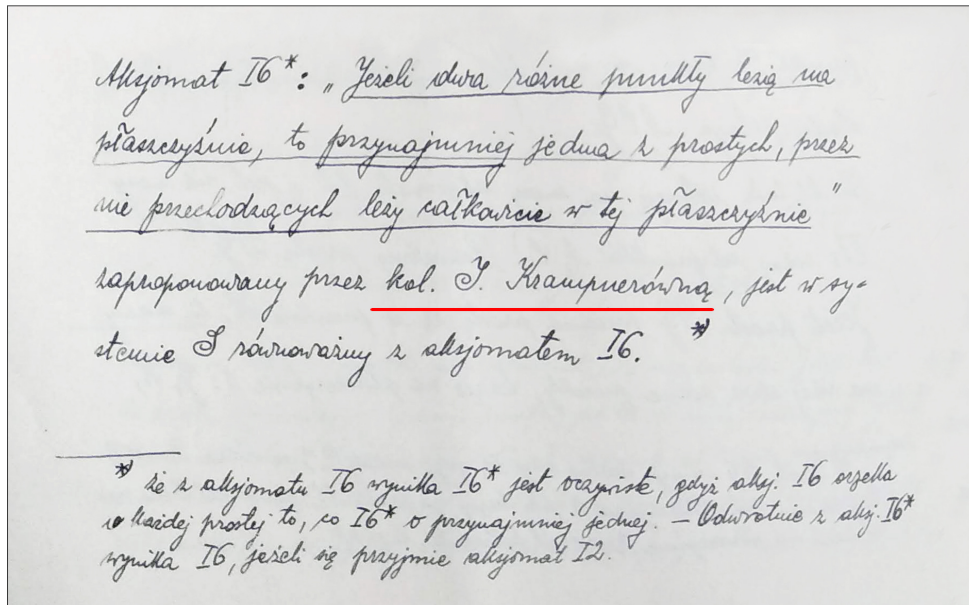 Aksjomat I6*: „Jeżeli dwa różne punkty leżą na
płaszczyźnie, to przynajmniej jedna z prostych, przez
nie przechodzących leży całkowicie w tej płaszczyźnie”
zaproponowany przez kol. I. Krampnerówną, jest w sy-
stemie S równoważny z aksjomatem I6. *)
*) że z aksjomatu I6 wynika I6* jest oczywiste, gdyż aksj. I6 orzeka
o każdej prostej to, co I6* o przynajmniej jednej. — Odwrotnie z aksj. I6*
wynika I6, jeżeli się przyjmie aksjomat I2.